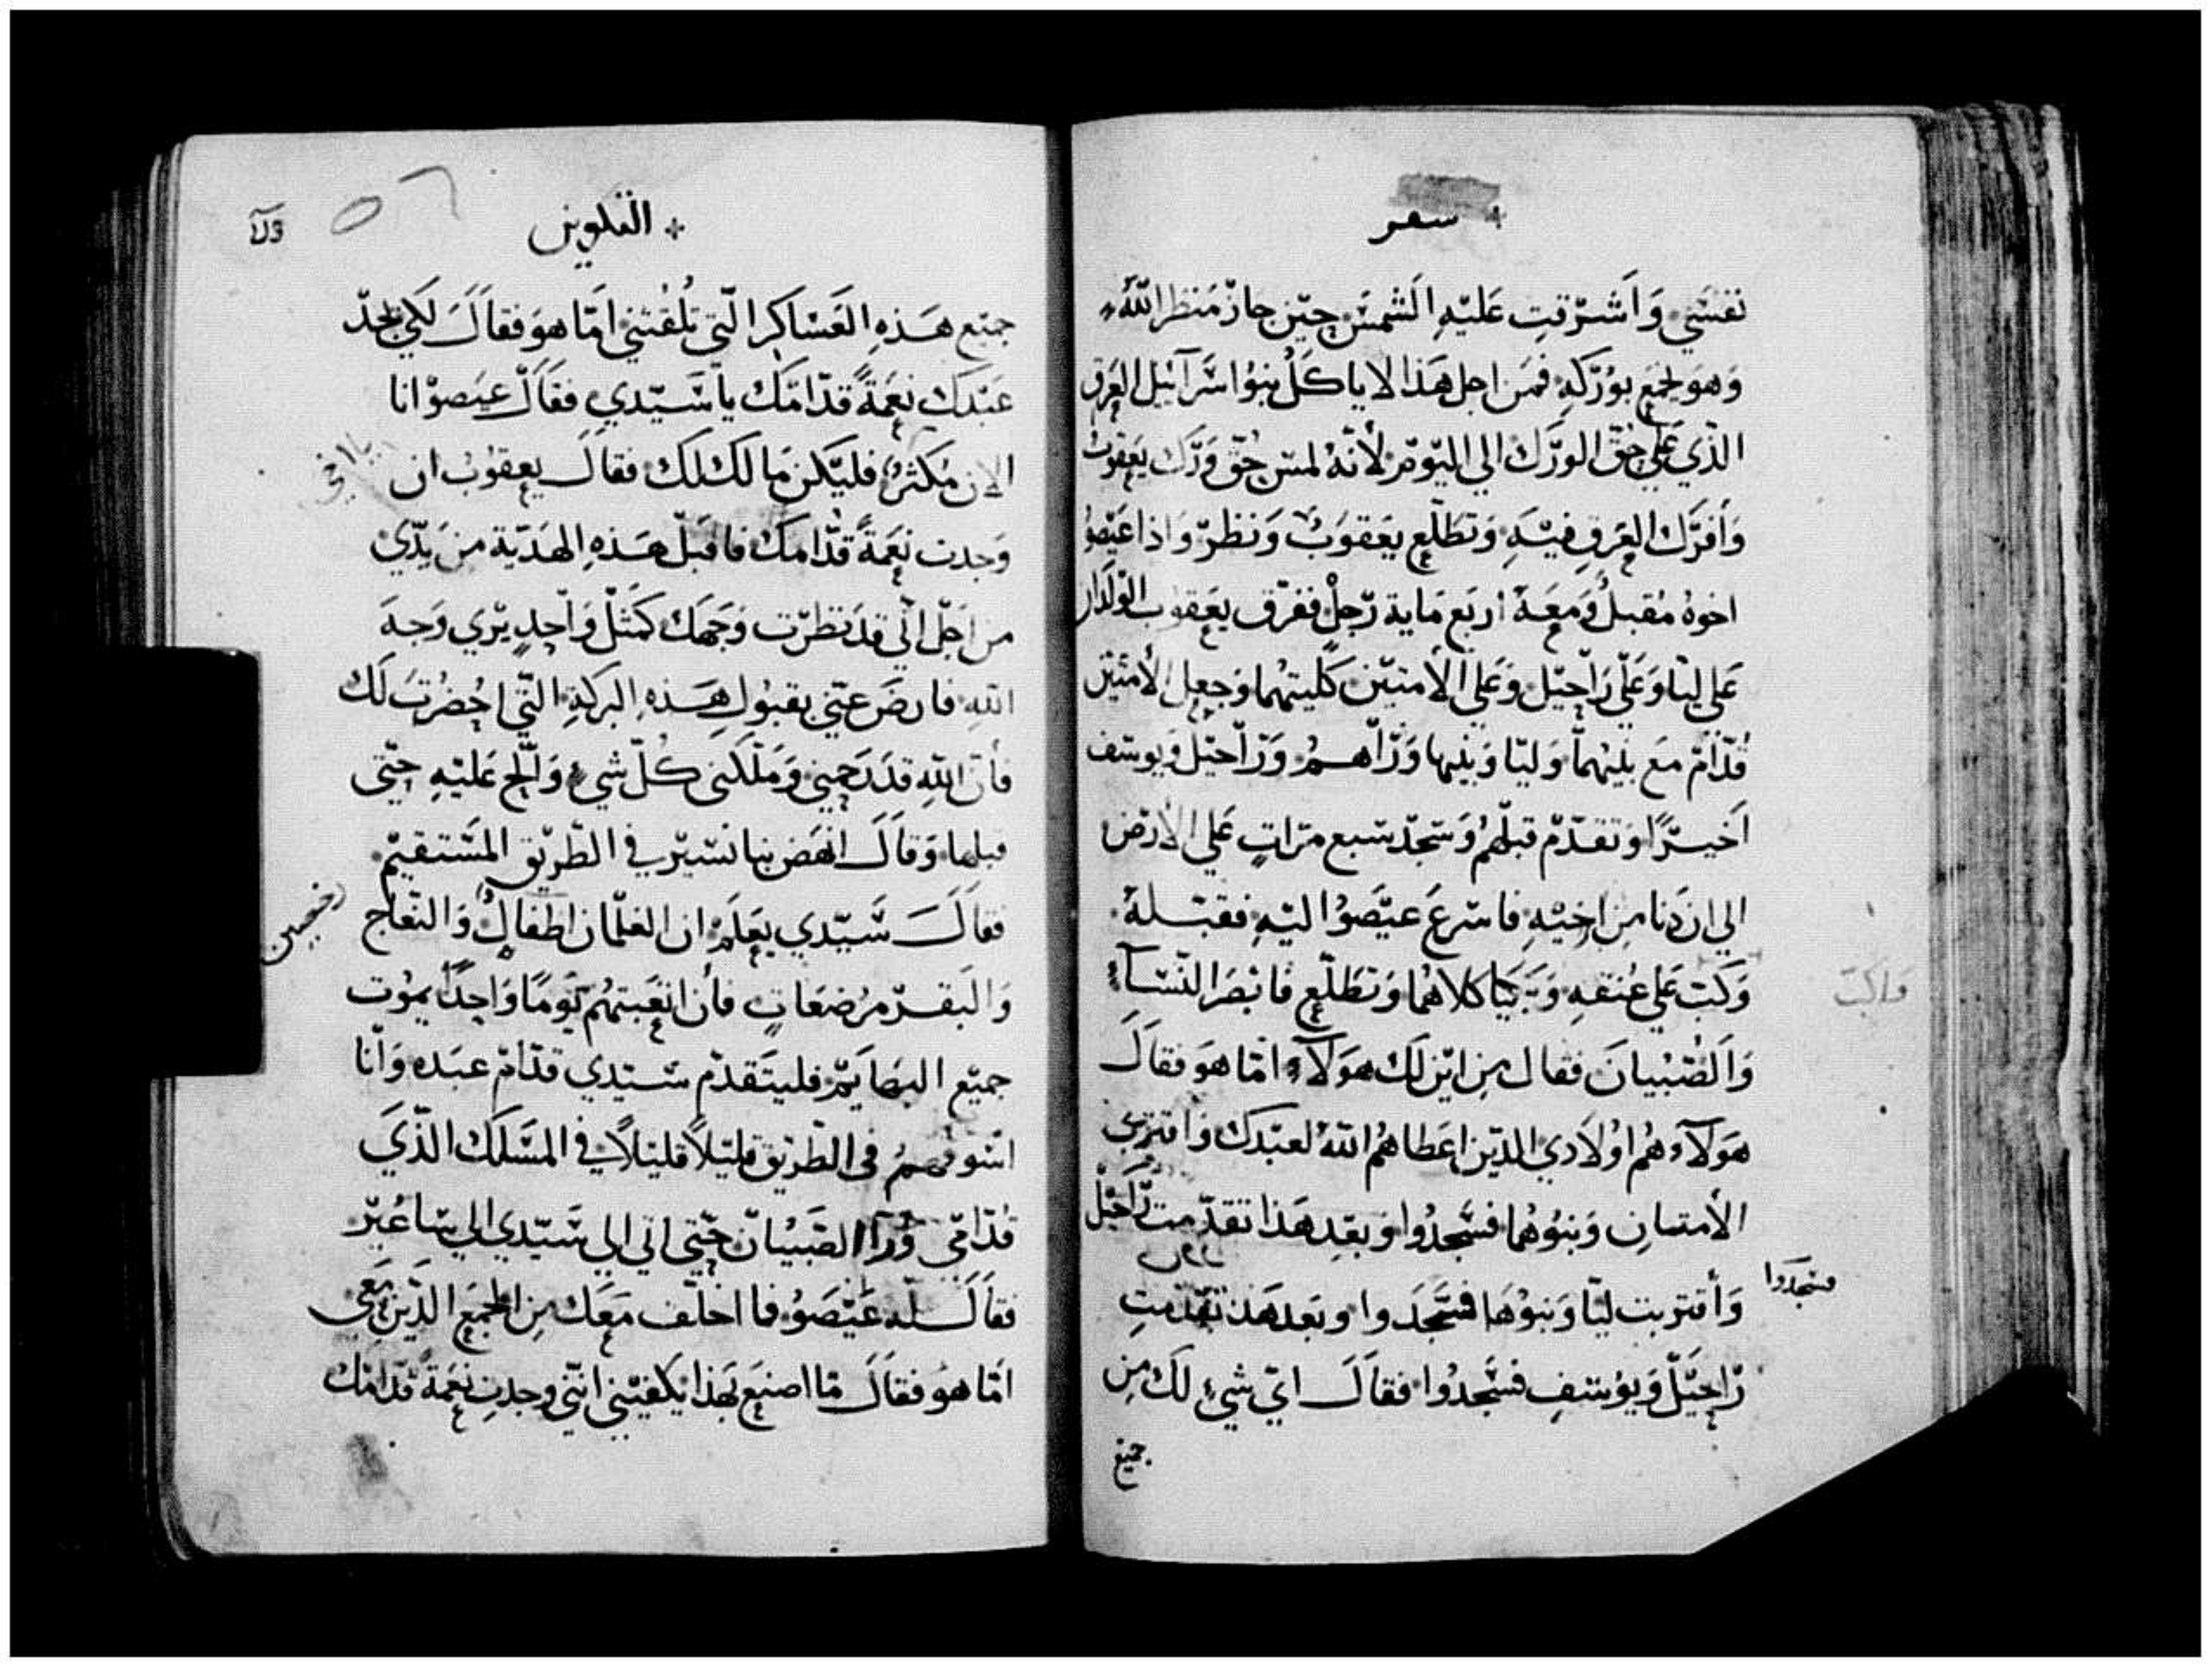 سفر
نفسي وَاَشرَقت عَليهِ الَشمسَ حين جازَ مَنظر اللّهُ
وَهوَ يجمَع بوُرَكهِ فمَن اجل هَذا لا ياكَلُ بنوُا سَرآئيل العِرق
الذي عَلي حُقّ الورَك الي اليَومِ لأنهُ لمسَ حُقّ وَرَك يعَقوُب
وَأفرَك العِرق فيهِ وَتطَلّع يعَقوَبُ وَنظرَ وَاذا عَيصوُ
اخوهُ مُقبلُ وَمعَهُ اربَع مَاية رَجلْ ففرَق يعَقوب الوَلدان
عَلي ليّا وَعَلي رَاحيَل وَعَلي الأمتيَن كَليتهُما وَجعل الأمتيَن
قُدّامَ مَع بنيهُما وَليّا وَبنيها وَرَاهمُ وَرَاحيَل وَيوسَف
اَخيرًا وَتقدّم قبلهمُ وَسَجدَ سَبع مرَاتٍ عَلي الأرَض
الي ان دَنا مِن اخيَهِ فاسَرعَ عيَصوُ اليَهِ فقبَلهُ
وَكَبَ عَلي عُنقهِ وَبَكيَا كلاهُما وَتطَلّع فابصَر النّسَآء
وَالصُبيانَ فقال مِن ايَن لَك هوَلآءِ امّا هوَ فقاَلَ
هوَلآء هُم اوُلادي الذيَن اعَطاهمُ اللّهُ لعبَدك وَاقترَبَ
الأمتان وَبنوُهُما فسَجدُوا وَبعَد هَذا تقدّمت رَاحيَل
وَأقترَبت ليّا وَبنوُهَا فسَجَدوا وبعَد هَذا تقدّمت
فسَجَدوا
رَاحيَل وَيوُسَف فسَجدُوا فقاَلَ ايَ شيء لَك مِن
جميَع
وَاكَبَ
القلوين
جميَع هَذهِ العَسَاكِر التي تلُقتني امَا هوَ فقاَلَ لَكي يجدَ
عَبدَك نعِمَةً قدّامَك يا سَيّدي فقَالَ عيَصوُ انا
الان مُكثرُ فليَكن مَا لَك لَك فقاَلَ يعِقوُب ان
يا اخي
وَجدت نعِمَةً قدّامَك فاقبَل هَذهِ الهَديّة مِن يَدّي
مِن اجَل انّي قدَ نظرَت وَجَهَك كَمثَل وَاحدٍ يرَي وَجهَ
اللّهِ فارضَ عنّي بقبوُل هَذهِ البرَكةِ التّي احُضرُت لَك
فأن اللّهِ قدَ رَحمني وَمَلّكني كُلّ شيءِ وَالّح عَليهِ حتّي
قبلها وَقاَلَ انهَض بنا نسَيرَ في الطَريَق المسَتقيَم
فقاَلَ سَّيدي يعَلَم ان الغلمَان اطَفالُ وَالنّعاج
وَالبقرَ مرُضعَاتٍ فأن اتعَبتهُم يوَمًا وَاحِدًا يموُت
جميَع البهَايمَ فليتَقدّم سَيدي قدّام عَبده وَانَا
اسَوقهمُ في الطَريَق قليَلاً قليَلاً في المسَلَك الذّيَ
قدّامّي وَرَآ الصَبيَان حتّي اتي الي سَيّدي الي سَاعُيرَ
فقاَلَ لهُ عَيَصَوُ فاخلّف مَعَك مِن الجمَع الذّيَن مَعي
امَا هوُ فقاَلَ مَا اصنعَ بهَذا يَكفيَني انني وَجدت نعِمَةً قدّامَك